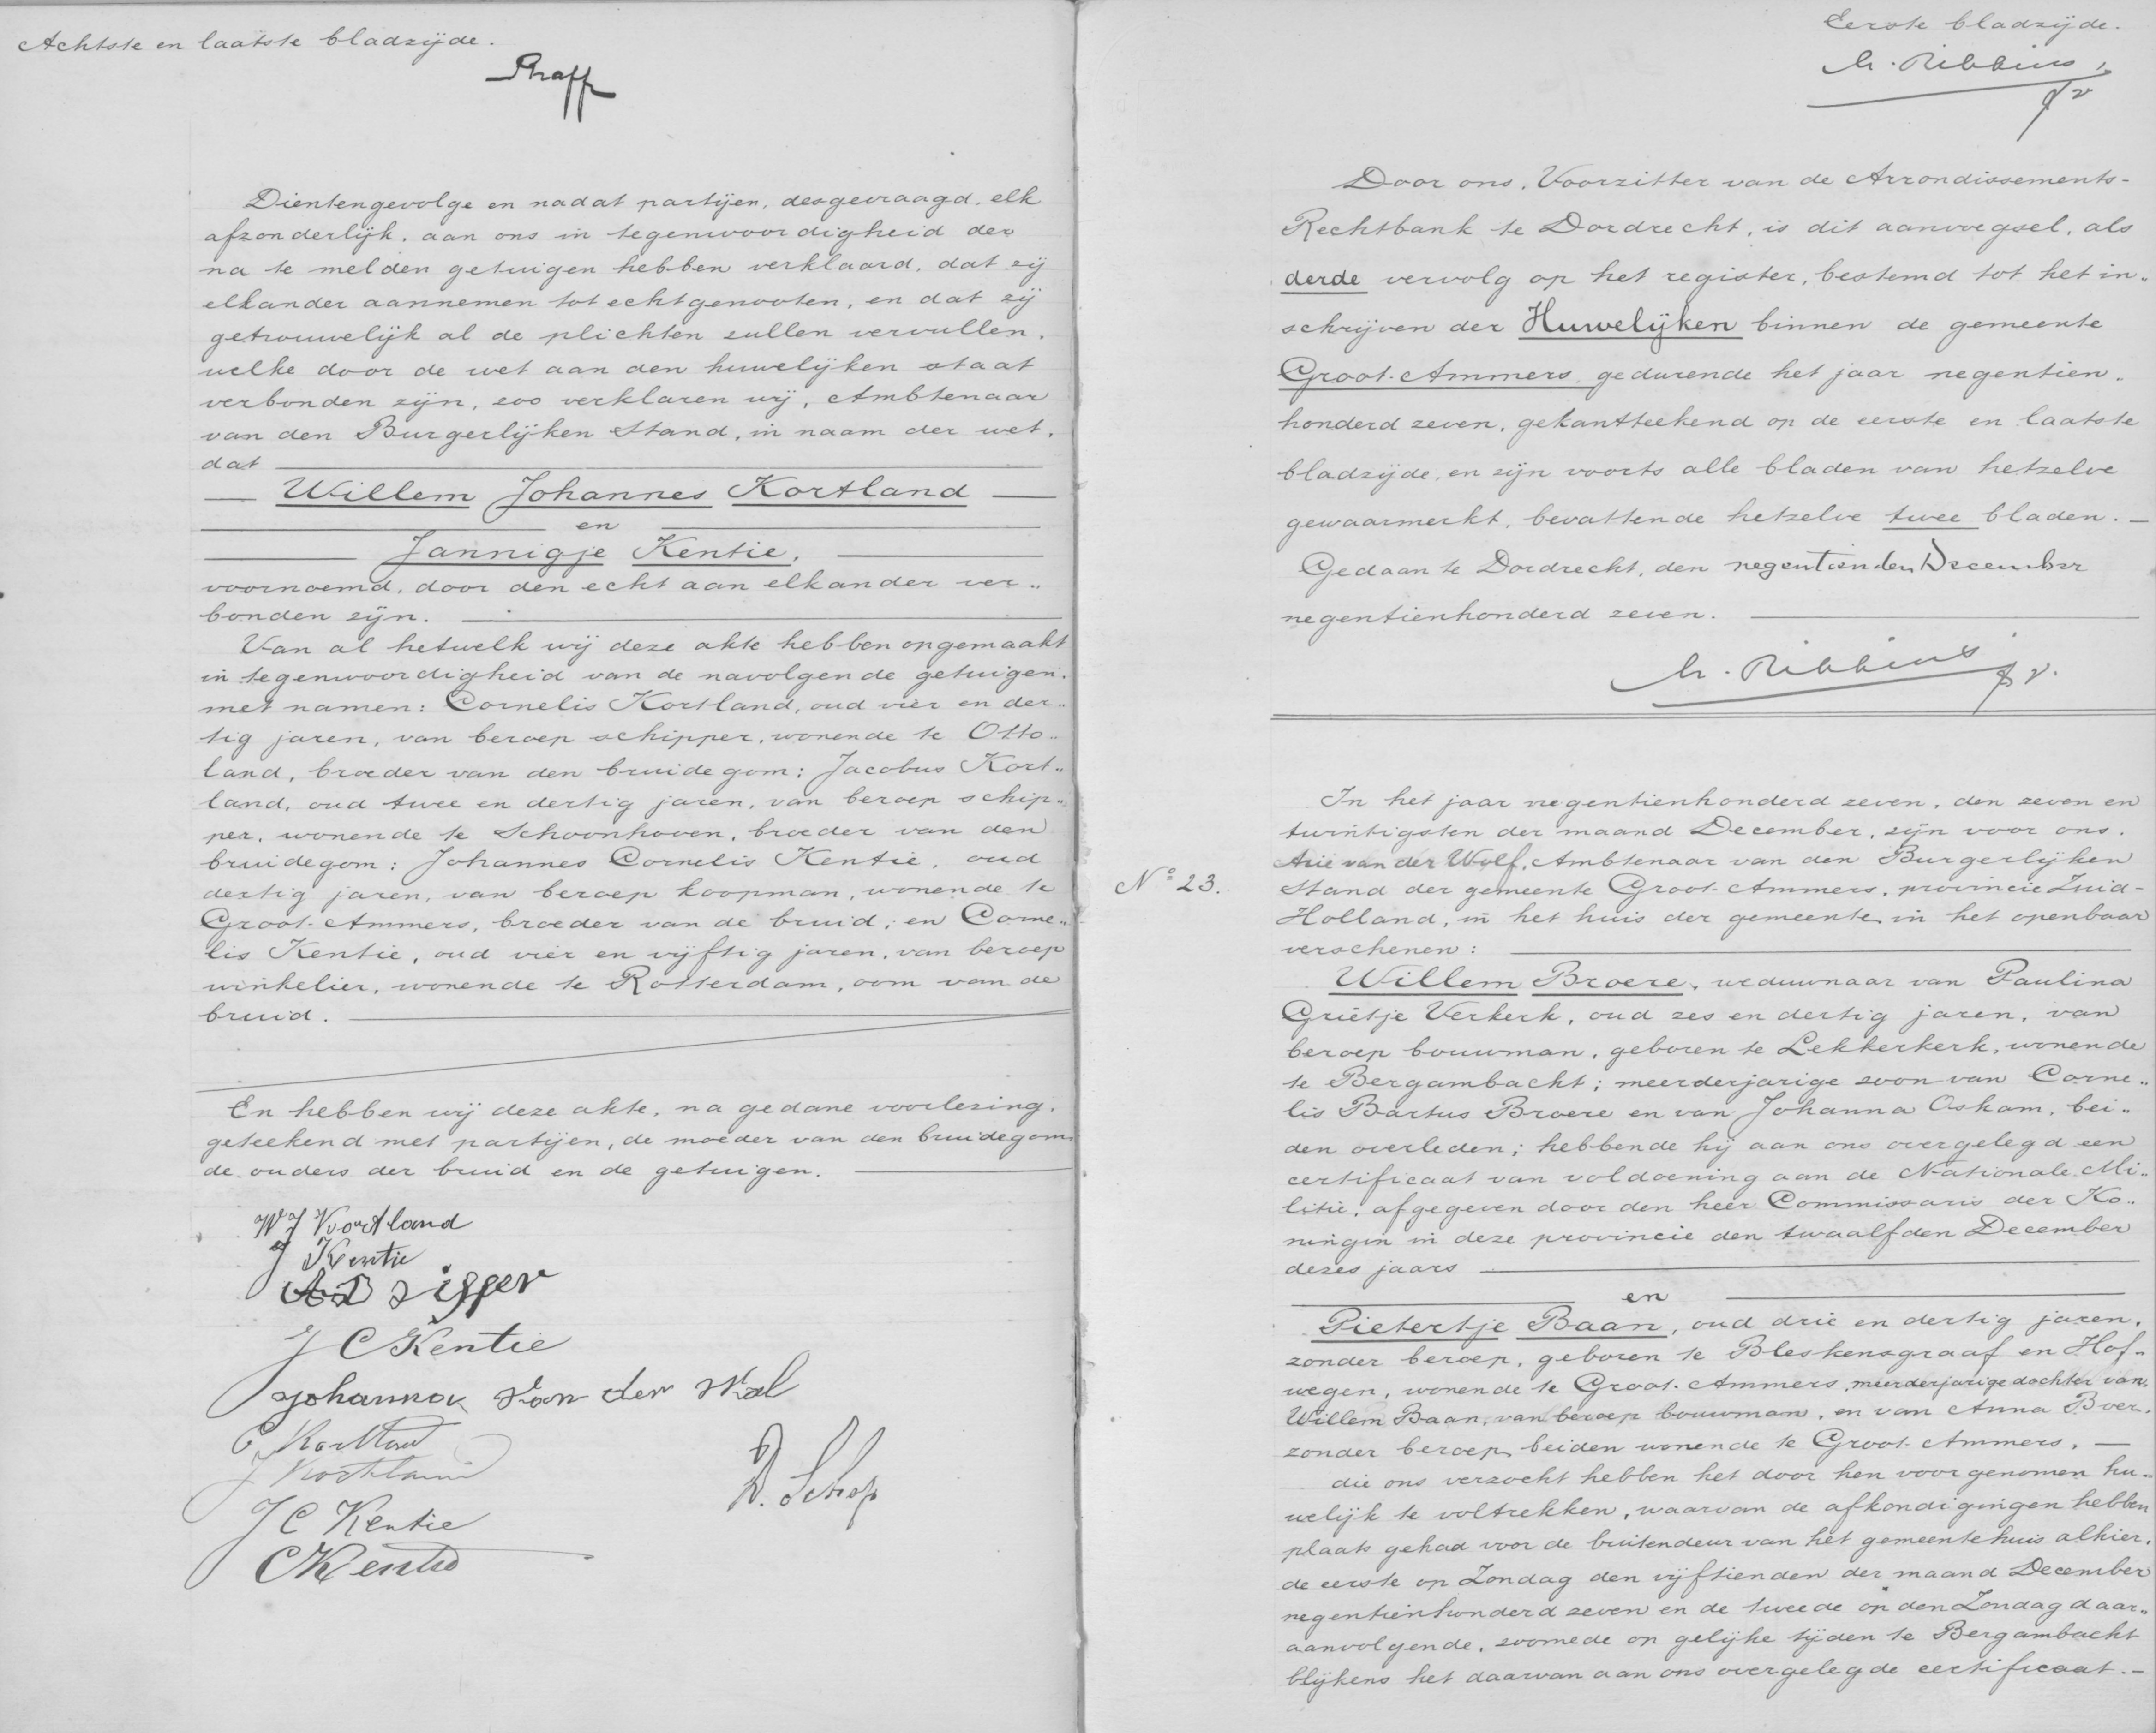 Achtste en laatste bladzijde.
Dientengevolge en nadat partijen, desgevraagd, elk
afzonderlijk, aan ons in tegenwoordigheid der
na te melden getuigen hebben verklaard, dat zij
elkander aannemen tot echtgenooten, en dat zij
getrouwelijk al de plichten zullen vervullen,
welke door de wet aan den huwelijken staat
verbonden zijn, zoo verklaren wij, Ambtenaar
van den Burgerlijken Stand, in naam der wet,
dat
Willem Johannes Kortland
en
Jannigje Kentie,
voornoemd, door den echt aan elkander ver„
bonden zijn.
Van al hetwelk wij deze akte hebben opgemaakt
in tegenwoordigheid van de navolgende getuigen,
met namen: Cornelis Kortland, oud vier en der„
tig jaren, van beroep schipper, wonende te Otto„
land, broeder van den bruidegom; Jacobus Kort„
land, oud twee en dertig jaren, van beroep schip„
per, wonende te Schoonhoven, broeder van den
bruidegom; Johannes Cornelis Kentie, oud
dertig jaren, van beroep koopman, wonende te
Groot-Ammers, broeder van de bruid; en Corne„
lis Kentie, oud vier en vijftig jaren, van beroep
winkelier, wonende te Rotterdam, oom van de
bruid.
En hebben wij deze akte, na gedane voorlezing,
geteekend met partijen, de moeder van den bruidegom,
de ouders der bruid en de getuigen.
W J Kortland
J Kentie
J C Kentie
Johanna van der Wal
C Kortland
J Kortland
D. Schep
J C Kentie
C Kentie
Eerste bladzijde.
Mr. Ribbius,
Door ons, Voorzitter van de Arrondissements-
Rechtbank te Dordrecht, is dit aanvoegsel, als
derde vervolg op het register, bestemd tot het in„
schrijven der Huwelijken binnen de gemeente
Groot-Ammers gedurende het jaar negentien„
honderd zeven, gekantteekend op de eerste en laatste
bladzijde, en zijn voorts alle bladen van hetzelve
gewaarmerkt, bevattende hetzelve twee bladen.
Gedaan te Dordrecht, den negentienden December
negentienhonderd zeven.
Mr. Ribbius
In het jaar negentienhonderd zeven, den zeven en
twintigsten der maand December, zijn voor ons,
Arie van der Wolf, Ambtenaar van den Burgerlijken
No 23.
Stand der gemeente Groot-Ammers, provincie Zuid-
Holland, in het huis der gemeente in het openbaar
verschenen:
Willem Broere, weduwnaar van Paulina
Grietje Verkerk, oud zes en dertig jaren, van
beroep bouwman, geboren te Lekkerkerk, wonende
te Bergambacht; meerderjarige zoon van Corne„
lis Bartus Broere en van Johanna Oskam, bei„
den overleden; hebbende hij aan ons overgelegd een
certificaat van voldoening aan de Nationale Mi„
litie, afgegeven door den heer Commissaris der Ko„
ningin in deze provincie den twaalfden December
dezes jaars
en
Pietertje Baan, oud drie en dertig jaren,
zonder beroep, geboren te Bleskensgraaf en Hof„
wegen, wonende te Groot-Ammers, meerderjarige dochter van
Willem Baan, van beroep bouwman, en van Anna Boer,
zonder beroep, beiden wonende te Groot-Ammers,
die ons verzocht hebben het door hen voorgenomen hu„
welijk te voltrekken, waarvan de afkondigingen hebben
plaats gehad voor de buitendeur van het gemeentehuis alhier,
de eerste op Zondag den vijftienden der maand December
negentienhonderd zeven en de tweede op den Zondag daar„
aanvolgende, zoomede op gelijke tijden te Bergambacht
blijkens het daarvan aan ons overgelegde certificaat.